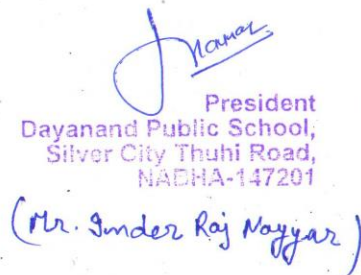 President
Dayanand Public School,
Silver City Thuhi Road,
NABHA-147201
(Mr. Inder Raj Nayyar)